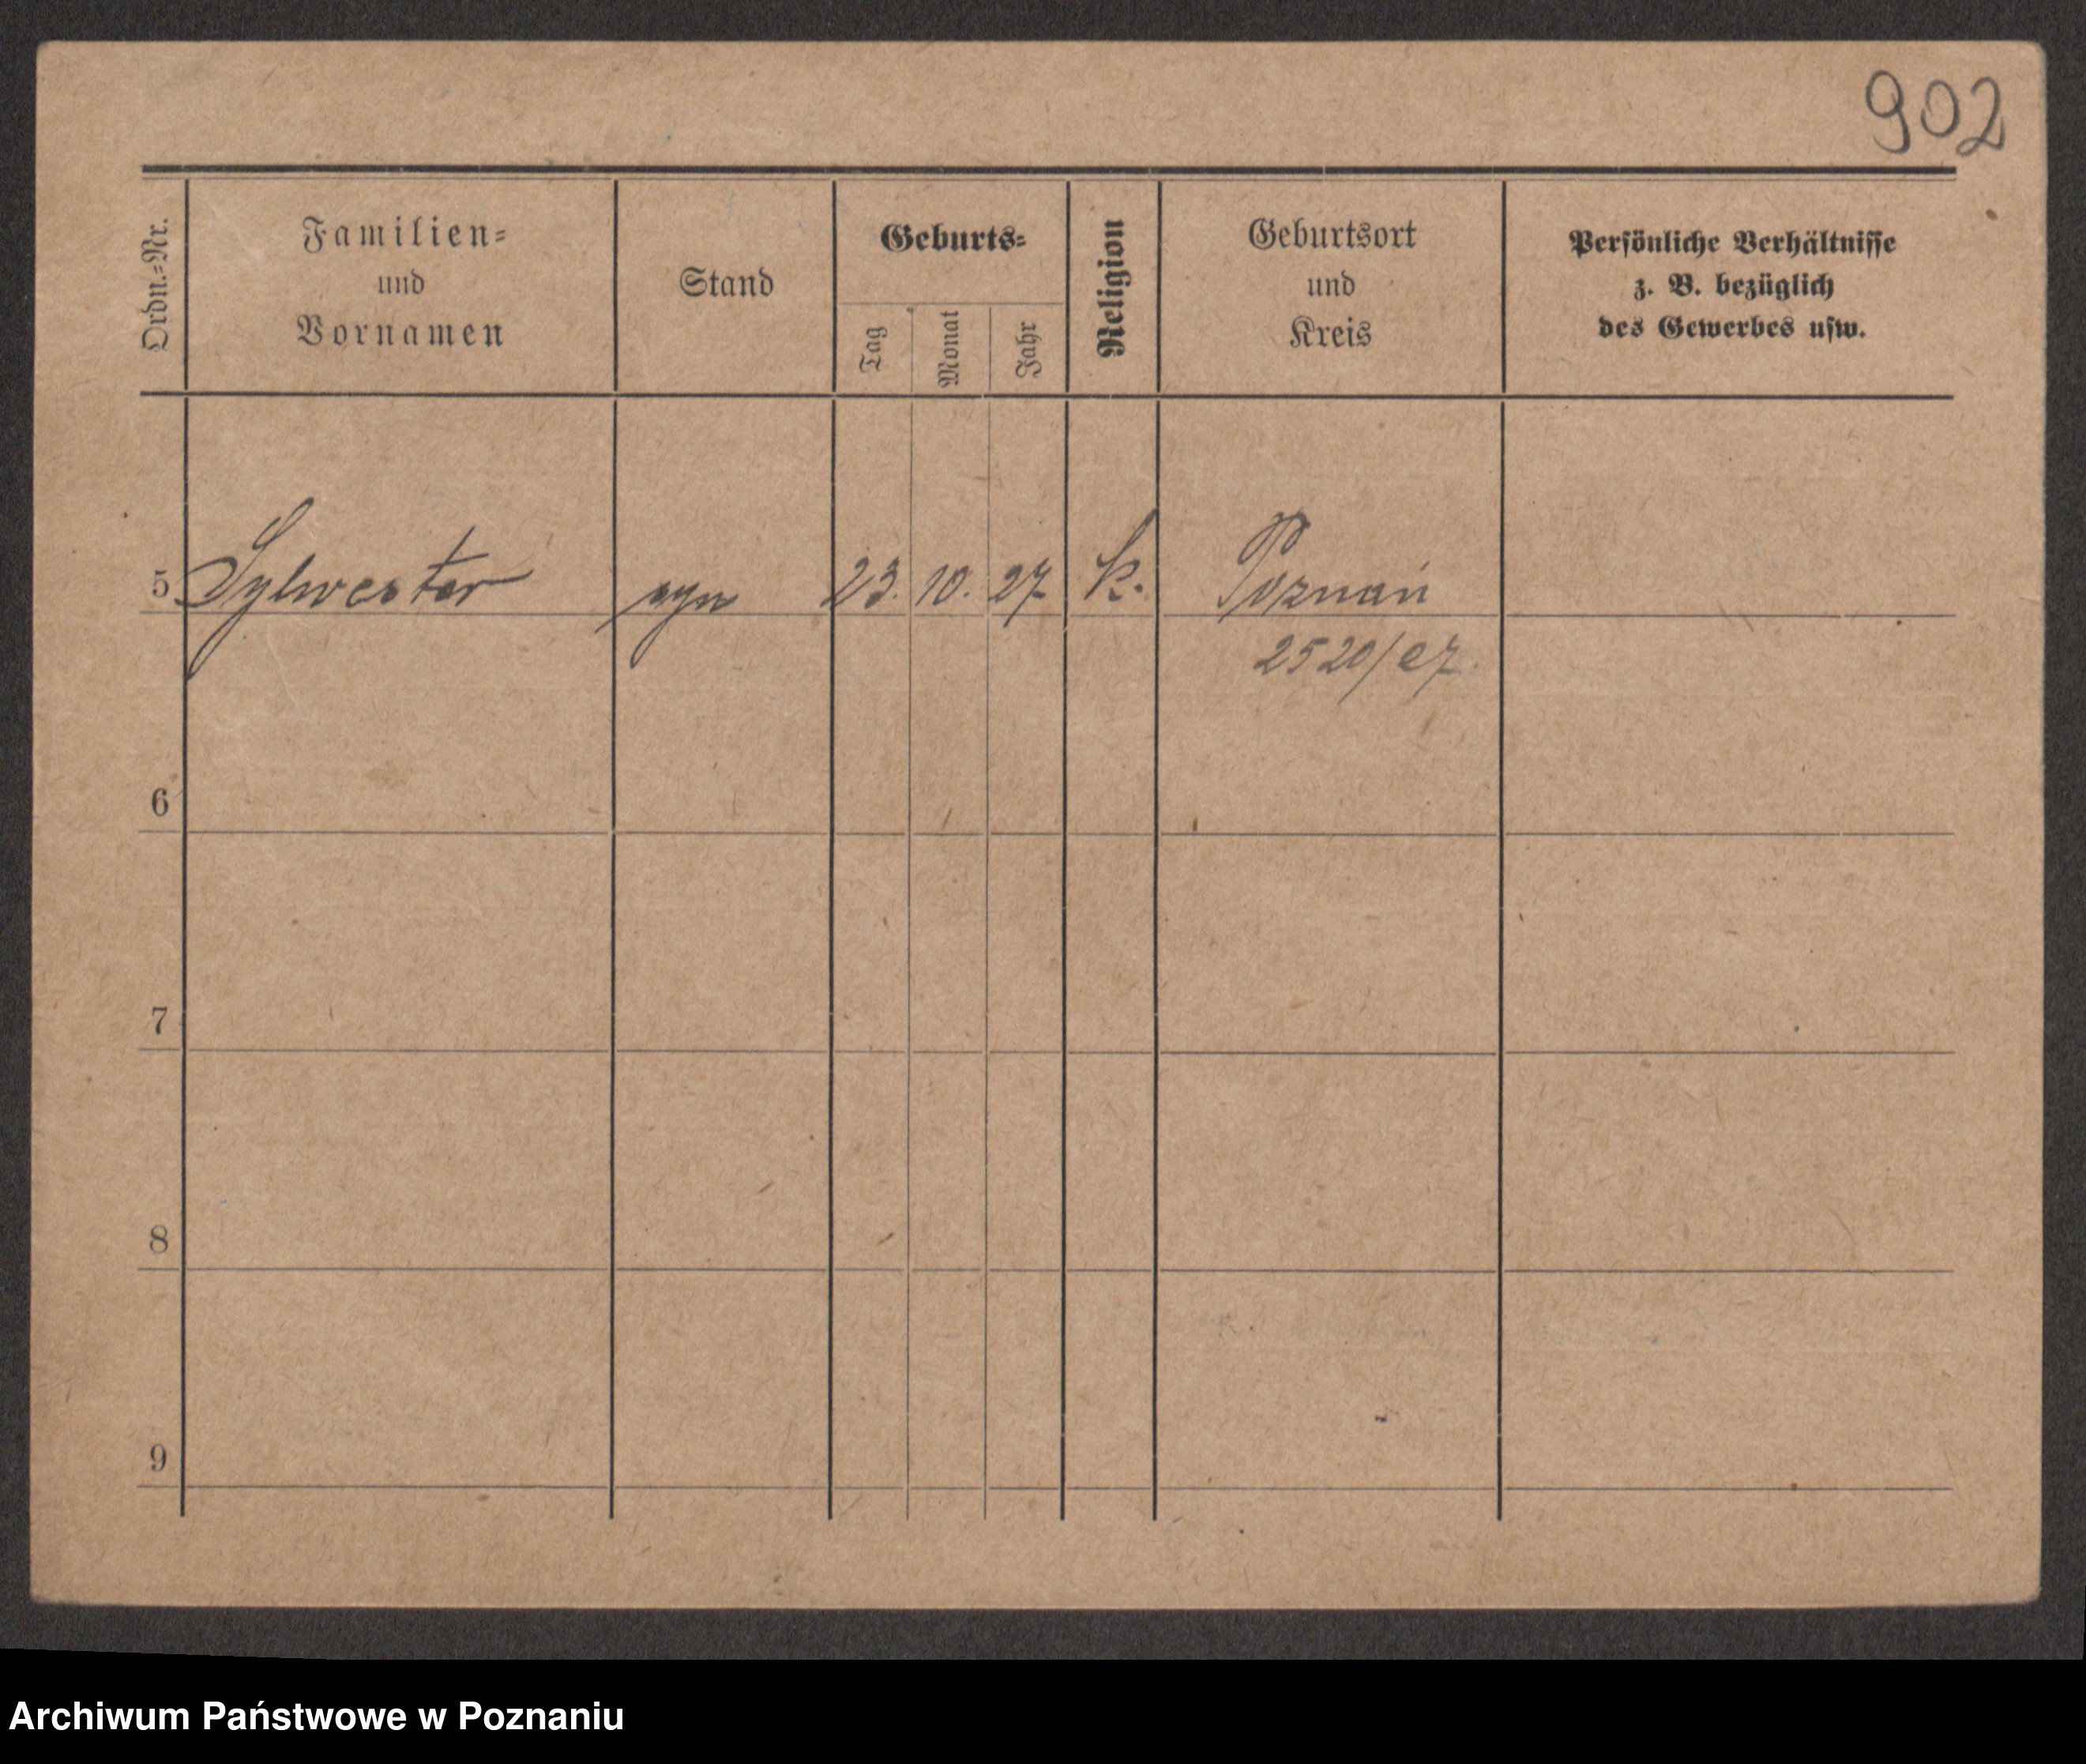 902
Ordn.-Nr.
Familien-
und
Vornamen
Stand
Geburts-
Tag
Monat
Jahr
Religion
Geburtsort
und
Kreis
Persönliche Verhältnisse
z. B. bezüglich
des Gewerbes usw.
5 Sylwester syn 23. 10. 27 k. Poznań
2520/27.
6
7
8
9
Archiwum Państwowe w Poznaniu